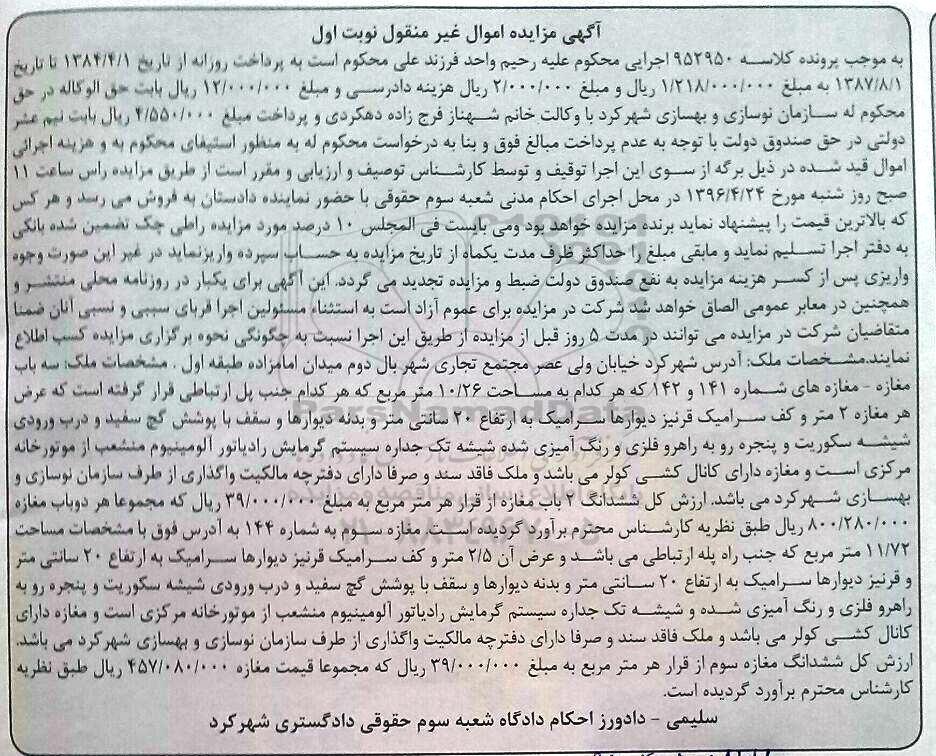 آگهی مزایده اموال غیر منقول نوبت اول
به موجب پرونده کلاسه ۹۵۲۹۵۰ اجرایی محکوم علیه رحیم واحد فرزند علی محکوم است به پرداخت روزانه از تاریخ ۱۳۸۴/۴/۱ تا تاریخ
۱۳۸۷/۸/۱ به مبلغ ۱/۲۱۸/۰۰۰/۰۰۰ ریال و مبلغ ۲/۰۰۰/۰۰۰ ریال هزینه دادرسی و مبلغ ۱۲/۰۰۰/۰۰۰ ریال بابت حق الوکاله در حق
محکوم له سازمان نوسازی و بهسازی شهرکرد با وکالت خانم شهناز فرج زاده دهکردی و پرداخت مبلغ ۴/۵۵۰/۰۰۰ ریال بابت نیم عشر
دولتی در حق صندوق دولت با توجه به عدم پرداخت مبالغ فوق و بنا به درخواست محکوم له به منظور استیفای محکوم به و هزینه اجرائی
اموال قید شده در ذیل برگه از سوی این اجرا توقیف و توسط کارشناس توصیف و ارزیابی و مقرر است از طریق مزایده راس ساعت ۱۱
صبح روز شنبه مورخ ۱۳۹۶/۴/۲۴ در محل اجرای احکام مدنی شعبه سوم حقوقی با حضور نماینده دادستان به فروش می رسد و هر کس
که بالاترین قیمت را پیشنهاد نماید برنده مزایده خواهد بود ومی بایست فی المجلس ۱۰ درصد مورد مزایده راطی چک تضمین شده بانکی
به دفتر اجرا تسلیم نماید و مابقی مبلغ را حداکثر ظرف مدت یکماه از تاریخ مزایده به حساب سپرده واریزنماید در غیر این صورت وجوه
واریزی پس از کسر هزینه مزایده به نفع صندوق دولت ضبط و مزایده تجدید می گردد. این آگهی برای یکبار در روزنامه محلی منتشر و
همچنین در معابر عمومی الصاق خواهد شد شرکت در مزایده برای عموم آزاد است به استثناء مسئولین اجرا قربای سببی و نسبی آنان ضمنا
متقاضیان شرکت در مزایده می توانند در مدت ۵ روز قبل از مزایده از طریق این اجرا نسبت به چگونگی نحوه برگزاری مزایده کسب اطلاع
نمایند.مشخصات ملک: آدرس شهرکرد خیابان ولی عصر مجتمع تجاری شهر بال دوم میدان امامزاده طبقه اول . مشخصات ملک: سه باب
مغازه - مغازه های شماره ۱۴۱ و ۱۴۲ که هر کدام به مساحت ۱۰/۲۶ متر مربع که هر کدام جنب پل ارتباطی قرار گرفته است که عرض
هر مغازه ۲ متر و کف سرامیک قرنیز دیوارها سرامیک به ارتفاع ۲۰ سانتی متر و بدنه دیوارها و سقف با پوشش گچ سفید و درب ورودی
شیشه سکوریت و پنجره رو به راهرو فلزی و رنگ آمیزی شده شیشه تک جداره سیستم گرمایش رادیاتور آلومینیوم منشعب از موتورخانه
مرکزی است و مغازه دارای کانال کشی کولر می باشد و ملک فاقد سند و صرفا دارای دفترچه مالکیت واگذاری از طرف سازمان نوسازی و
بهسازی شهرکرد می باشد. ارزش کل ششدانگ ۲ باب مغازه از قرار هر متر مربع به مبلغ ۳۹/۰۰۰/۰۰۰ ریال که مجموعا هر دوباب مغازه
۸۰۰/۲۸۰/۰۰۰ ریال طبق نظریه کارشناس محترم برآورد گردیده است مغازه سوم به شماره ۱۴۴ به آدرس فوق با مشخصات مساحت
۱۱/۷۲ متر مربع که جنب راه پله ارتباطی می باشد و عرض آن ۲/۵ متر و کف سرامیک قرنیز دیوارها سرامیک به ارتفاع ۲۰ سانتی متر
و قرنیز دیوارها سرامیک به ارتفاع ۲۰ سانتی متر و بدنه دیوارها و سقف با پوشش گچ سفید و درب ورودی شیشه سکوریت و پنجره رو به
راهرو فلزی و رنگ آمیزی شده و شیشه تک جداره سیستم گرمایش رادیاتور آلومینیوم منشعب از موتورخانه مرکزی است و مغازه دارای
کانال کشی کولر می باشد و ملک فاقد سند و صرفا دارای دفترچه مالکیت واگذاری از طرف سازمان نوسازی و بهسازی شهرکرد می باشد.
ارزش کل ششدانگ مغازه سوم از قرار هر متر مربع به مبلغ ۳۹/۰۰۰/۰۰۰ ریال که مجموعا قیمت مغازه ۴۵۷/۰۸۰/۰۰۰ ریال طبق نظریه
کارشناس محترم برآورد گردیده است.
سلیمی - دادورز احکام دادگاه شعبه سوم حقوقی دادگستری شهرکرد
ParsNamadData